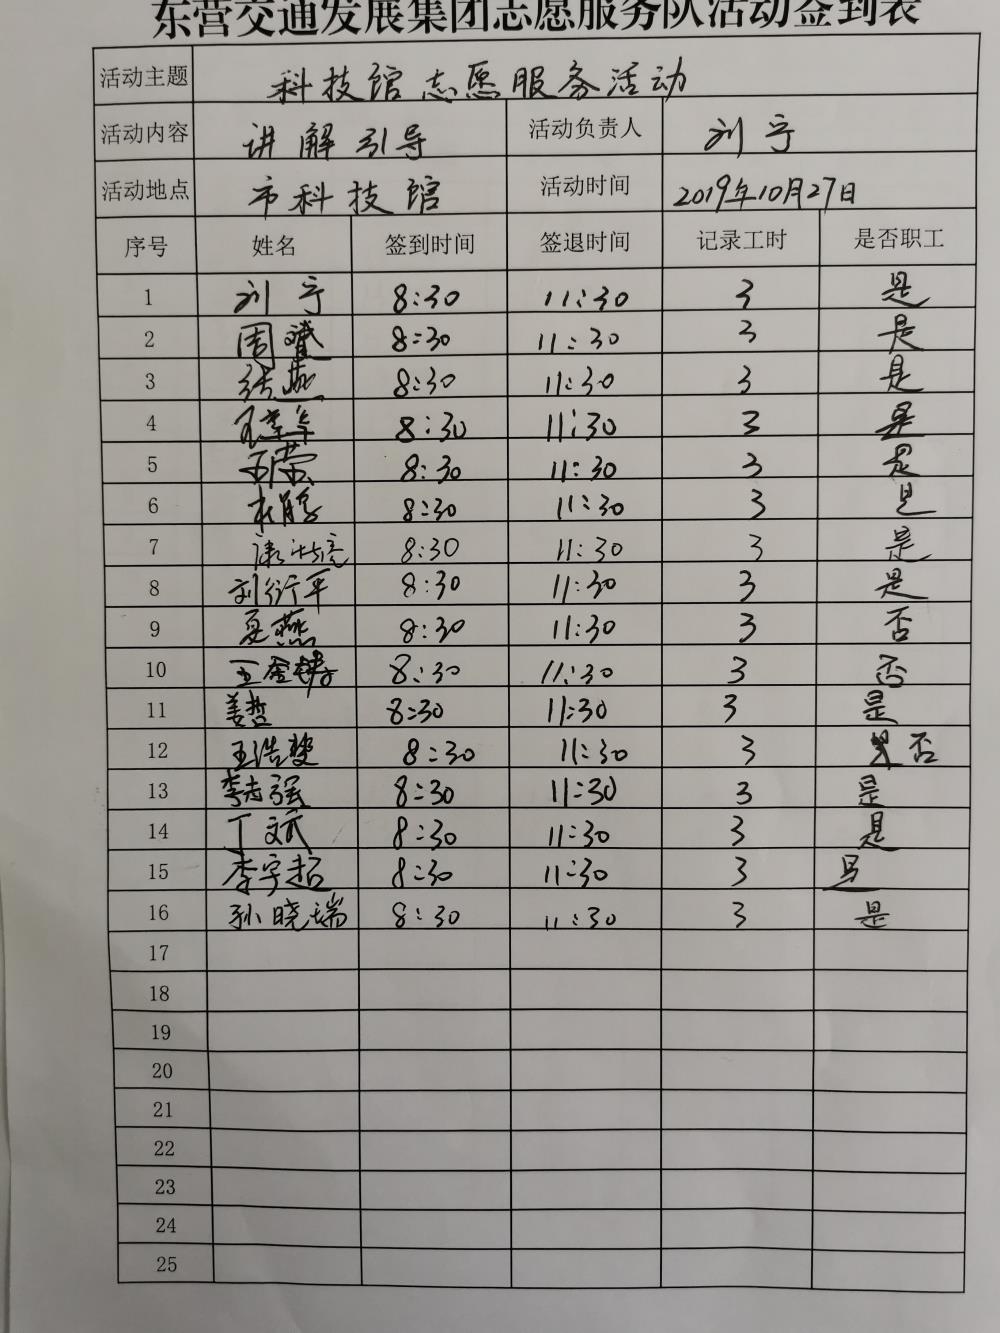 东营交通发展集团志愿服务队活动签到表
活动主题 科技馆志愿服务活动
活动内容 讲解引导 活动负责人 刘宁
活动地点 市科技馆 活动时间 2019年10月27日
序号 姓名 签到时间 签退时间 记录工时 是否职工
1 刘宁 8:30 11:30 3 是
2 周 8:30 11:30 3 是
3 8:30 11:30 3 是
4 8:30 11:30 3 是
5 8:30 11:30 3 是
6 8:30 11:30 3 是
7 8:30 11:30 3 是
8 刘衍平 8:30 11:30 3 是
9 夏燕 8:30 11:30 3 否
10 王金 8:30 11:30 3 否
11 姜哲 8:30 11:30 3 是
12 王浩 8:30 11:30 3 否
13 李志强 8:30 11:30 3 是
14 丁文武 8:30 11:30 3 是
15 李宇超 8:30 11:30 3 是
16 孙晓瑞 8:30 11:30 3 是
17
18
19
20
21
22
23
24
25